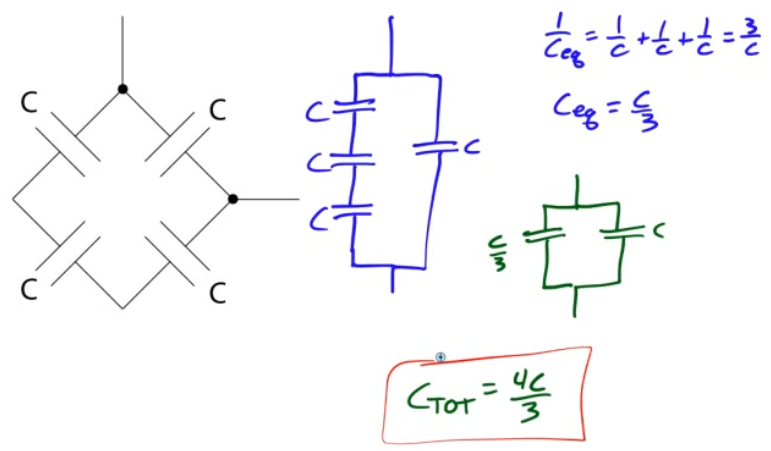 C
C
C
C
C
C
C
C
1/C_eq = 1/C + 1/C + 1/C = 3/C
C_eq = C/3
C/3
C
C_TOT = 4C/3